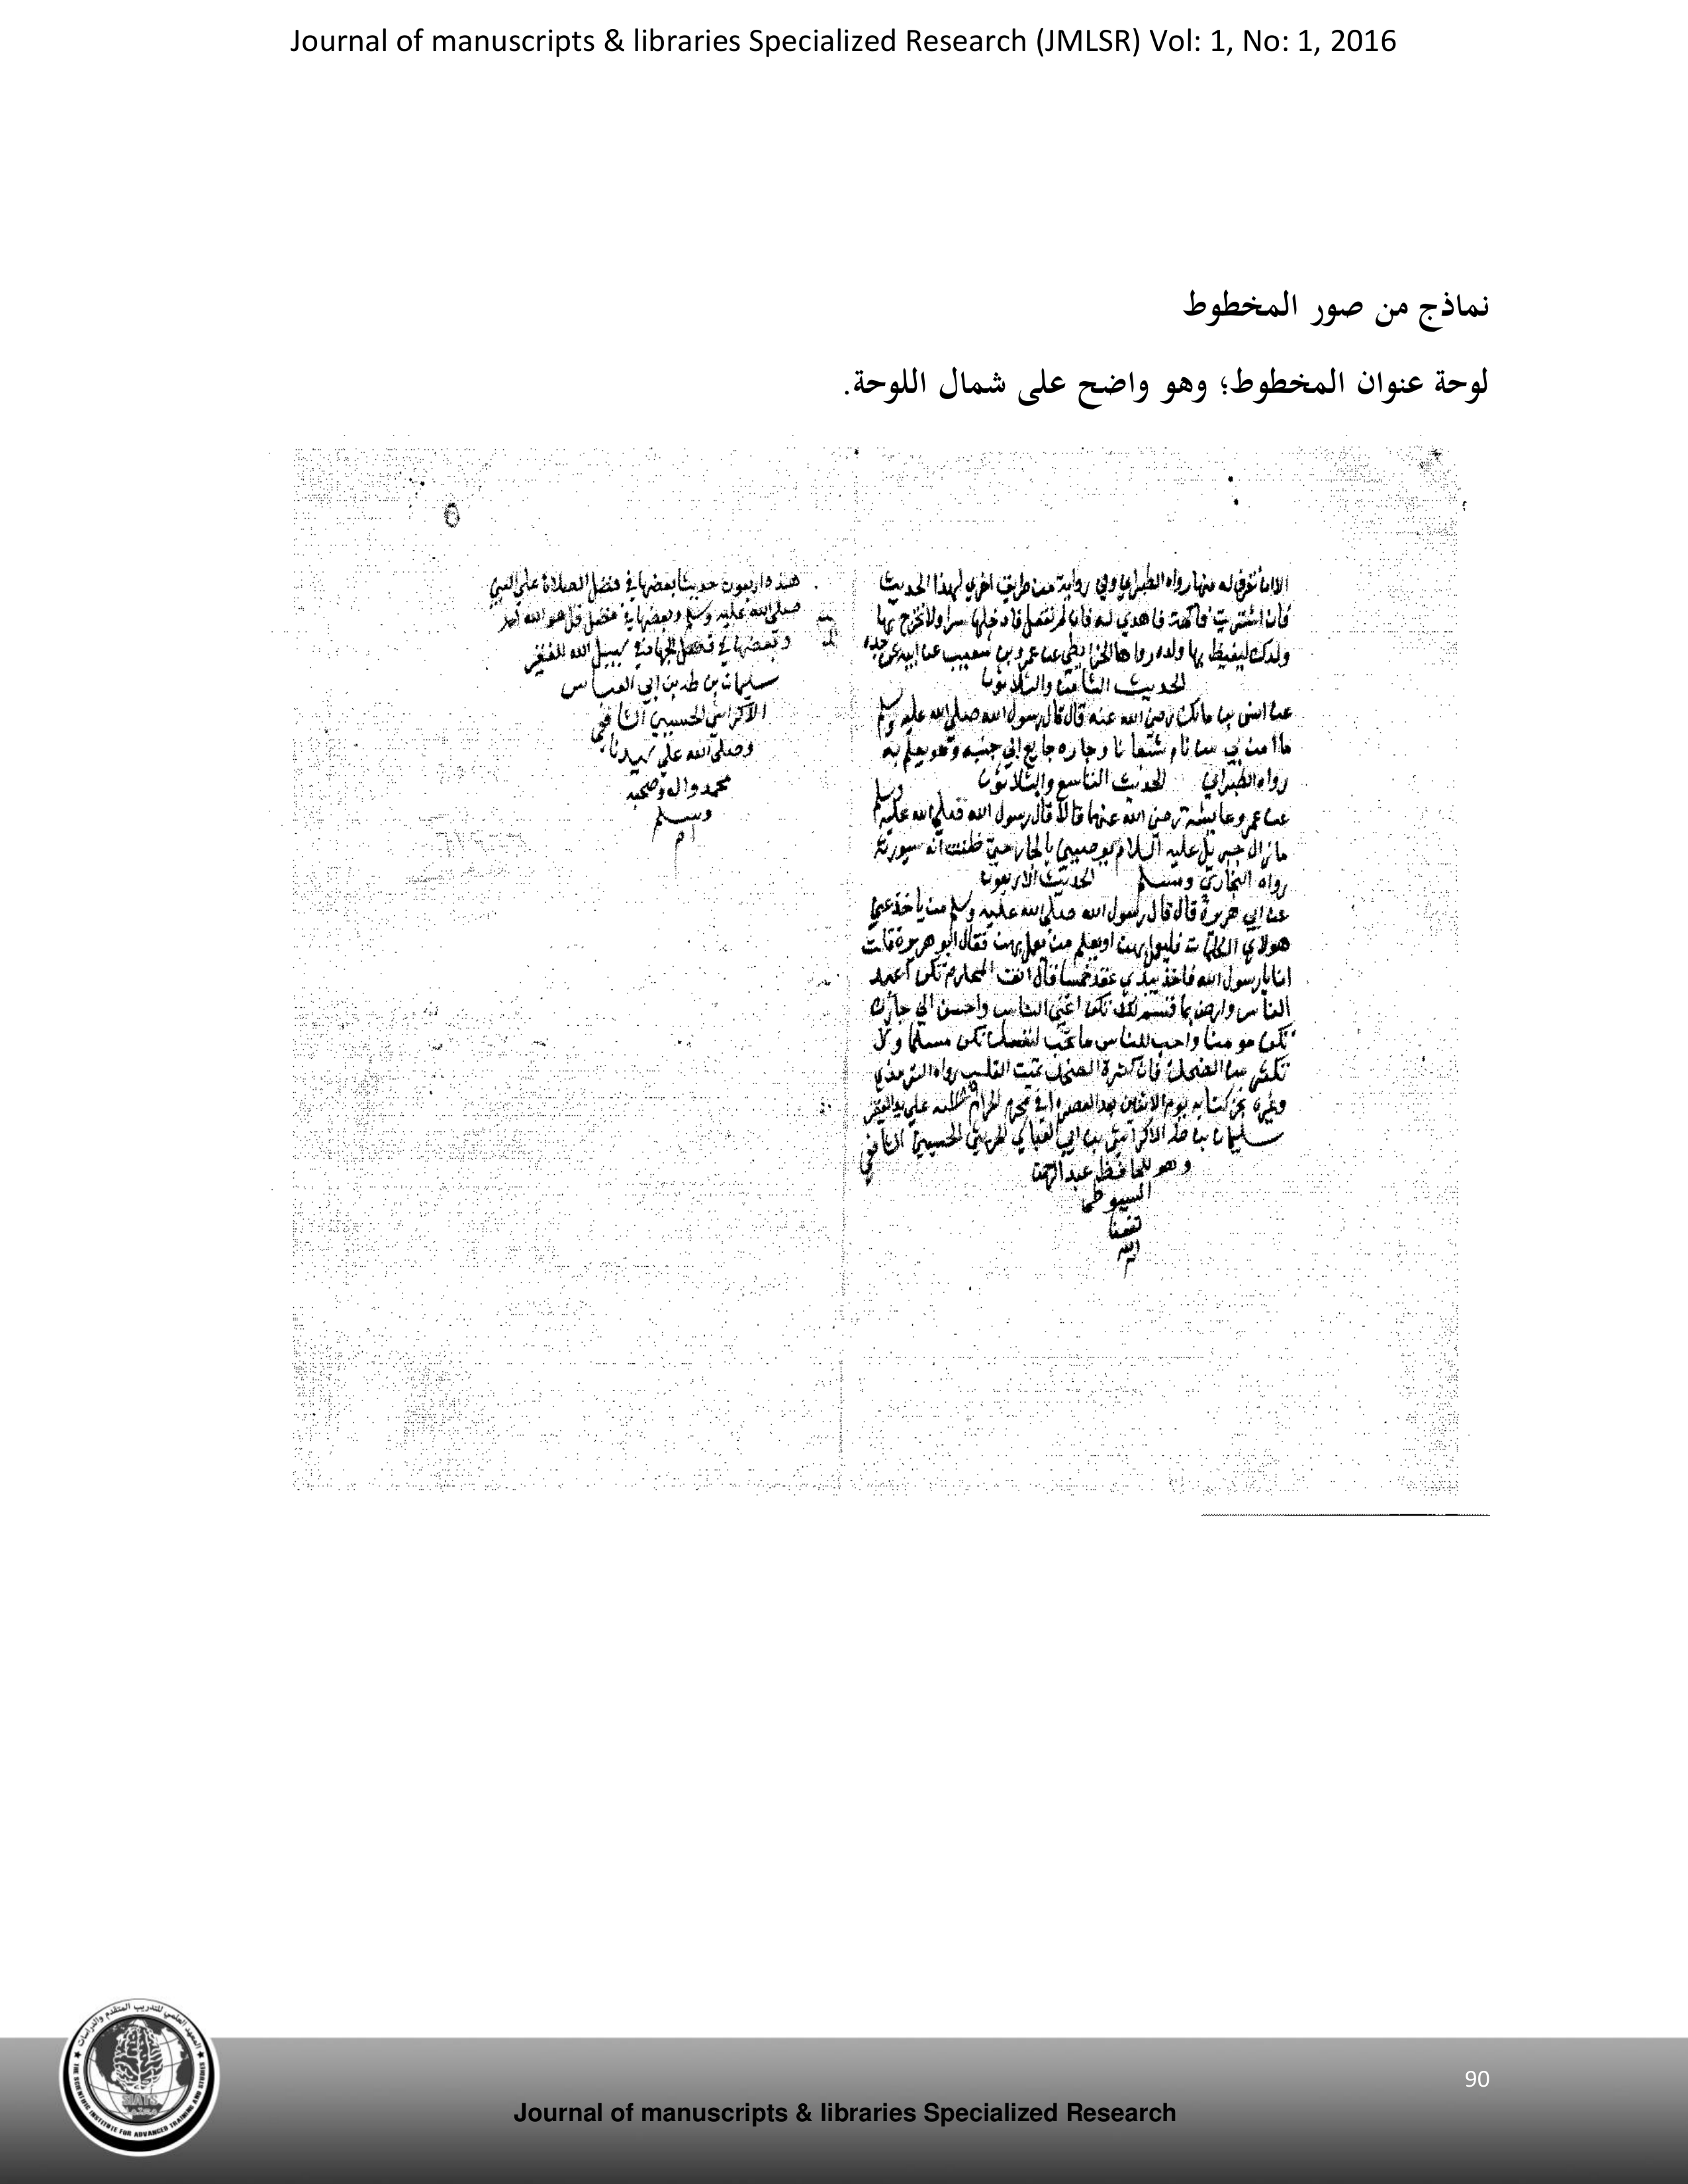 Journal of manuscripts & libraries Specialized Research (JMLSR) Vol: 1, No: 1, 2016
نماذج من صور المخطوط
لوحة عنوان المخطوط؛ وهو واضح على شمال اللوحة.
الاما تؤفي له منها رواه الطبراني وفي رواية من طريق اخري لهذا الحديث
فان اشتريت فاكهة فاهدي له فان لم تفعل فادخلها سرا ولا تخرج بها
ولدك ليغيظ بها ولده رواها الخرايطي عن عمرو بن شعيب عن ابيه عن جده
الحديث الثامن والثلاثون
عن انس بن مالك رضي الله عنه قال قال رسول الله صلي الله عليه وسلم
ما امن بي من نام شبعانا وجاره جايع الي جنبه وهو يعلم به
رواه الطبراني الحديث التاسع والثلاثون
عن عمر وعايشة رضي الله عنهما قالا قال رسول الله صلي الله عليه وسلم
مازال جبريل عليه السلام يوصيني بالجار حتي ظننت انه سيورثه
رواه البخاري ومسلم الحديث الاربعون
عن ابي هريرة قال قال رسول الله صلي الله عليه وسلم من ياخذ عني
هولاي الكلمات فليعمل بهن او يعلم من يعمل بهن فقال ابو هريرة قلت
انا يا رسول الله فاخذ بيدي عقد خمسا قال اتق المحارم تكن اعبد
الناس وارض بما قسم لك تكن اغني الناس واحسن الي جارك
تكن مومنا واحب للناس ما تحب لنفسك تكن مسلما ولا
تكثر من الضحك فان كثرة الضحك تميت القلب رواه الترمذي
وغيره نجز كتابه يوم الاثنين بعد العصر في محرم الحرام علي يد الفقير
سليمان بن طه الاكراشي بن ابي العباس الحسيني الشافعي
وهو للحافظ عبد الرحمن
السيوطي
نفعنا
الله
هذه اربعون حديثا بعضها في فضل الصلاة علي النبي
صلي الله عليه وسلم وبعضها في فضل قل هو الله احد
وبعضها في فضل الجهاد في سبيل الله للفقير
سليمان بن طه بن ابي العباس
الاكراشي الحسيني الشافعي
وصلي الله علي سيدنا
محمد واله وصحبه
وسلم
ام
90
Journal of manuscripts & libraries Specialized Research
المعهد العلمي للتدريب المتقدم والدراسات
SIATS
THE SCIENTIFIC INSTITUTE FOR ADVANCED TRAINING AND STUDIES